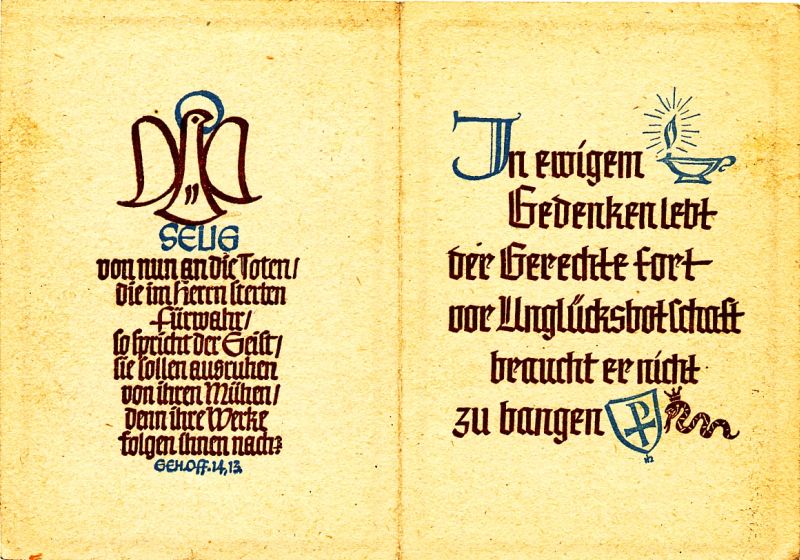 SELIG
von nun an die Toten/
die im Herrn sterben
Fürwahr/
so spricht der Geist/
sie sollen ausruhen
von ihren Mühen/
denn ihre Werke
folgen ihnen nach:
GEH.OFF. 14,13.
In ewigem
Gedenken lebt
der Gerechte fort
vor Unglücksbotschaft
braucht er nicht
zu bangen